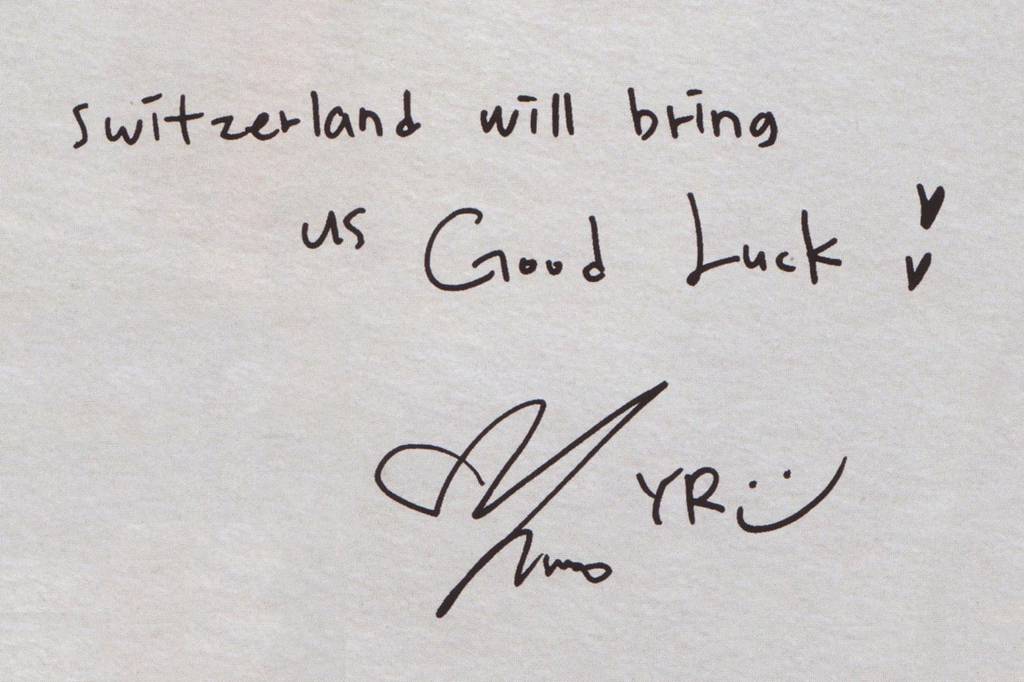 switzerland will bring
us Good Luck
YR